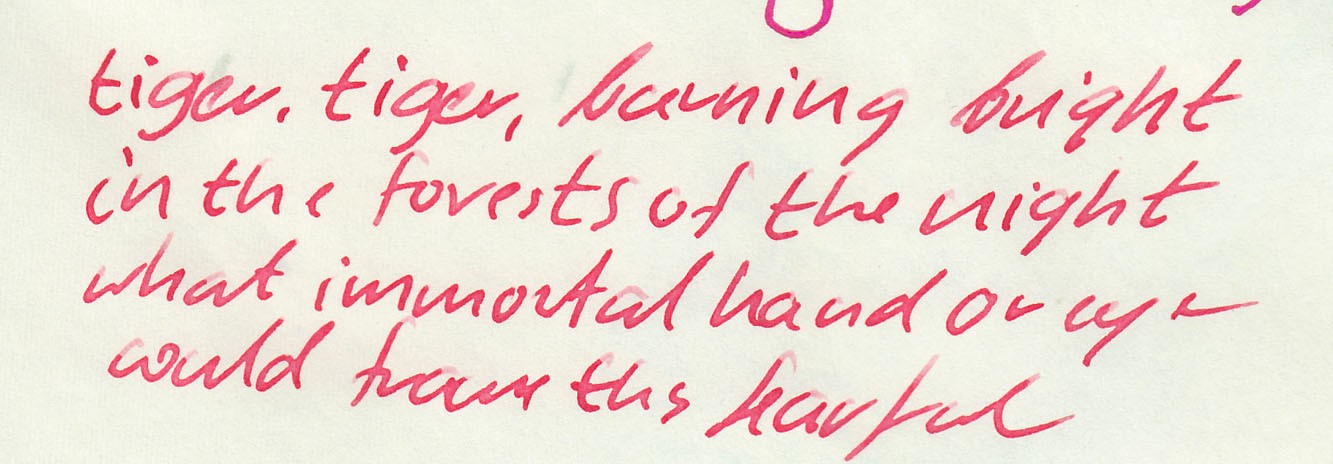 tiger, tiger, burning bright
in the forests of the night
what immortal hand or eye
would frame this fearful